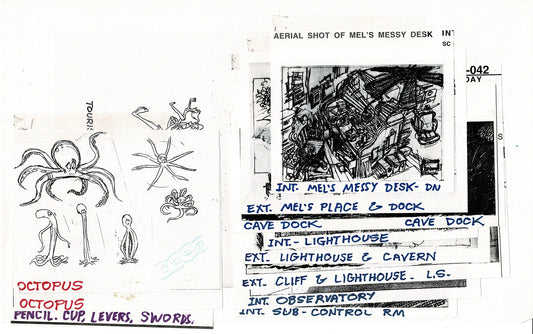 TOURIS
OCTOPUS
OCTOPUS
PENCIL. CUP, LEVERS, SWORDS.
AERIAL SHOT OF MEL'S MESSY DESK
INT
SC
-042
DAY
S
INT. MEL'S MESSY DESK- DN
EXT. MEL'S PLACE & DOCK
CAVE DOCK CAVE DOCK
INT.- LIGHTHOUSE
EXT. LIGHTHOUSE & CAVERN
EXT. CLIFF & LIGHTHOUSE. L.S.
INT. OBSERVATORY
INT. SUB-CONTROL RM